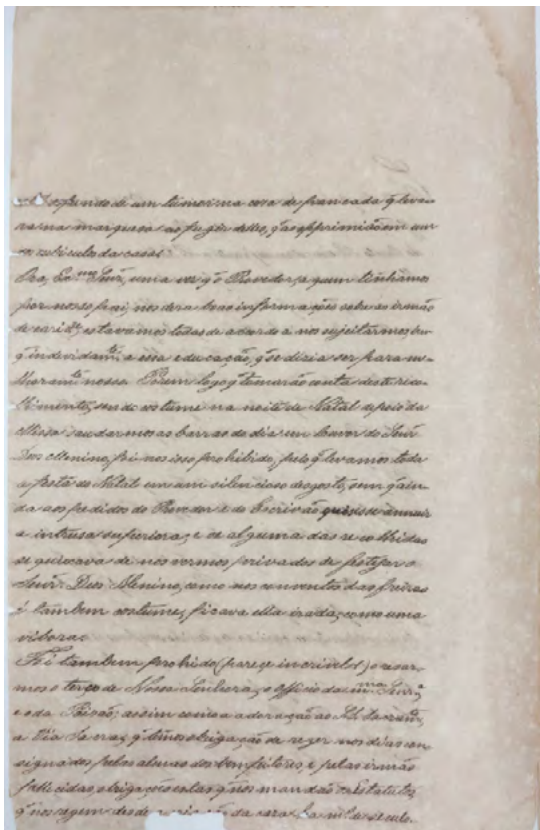 de um tumor na cova de pancada q leva
ra na ao fugir delles, q as opprimião em um
cubiculo da casa.
Ora, Exmo Senr, uma vez q o Provedor, a quem tinhamos
por nosso pai, nos dera boas informações sobre as irmãs
de carid.e, estavamos todas de acordo a nos sujeitarmos, bem
q indevidamte a essa educação, q se dizia ser para me-
lhoramto nosso. Porem logo q tomarão conta deste reco-
lhimento, sendo costume na noite de Natal depois da
Missa saudarmos as barras do dia em louvor do Senr
Deos Menino, foi-nos isso prohibido, pelo q levamos toda
a festa do Natal em um silencioso desgosto, sem q ain-
da aos pedidos do Provedor e do Escrivão quizesse annuir
a intrusa superiora; e se alguma das recolhidas
se queixava de nos vermos privados de festejar o
Senr. Deos Menino, como nos conventos das freiras
é tambem costume, ficava ella irada, como uma
vibora.
Foi tambem prohibido (parece incrivel!) o rezar-
mos o terço de Nossa Senhora, o officio da mma Senra
e o da Paixão; assim como a adoração ao SS. Sacramto,
a Via Sacra, q temos obrigação de rezar nos dias con-
signados pelas almas dos bemfeitores, e pelas irmãs
fallecidas, obrigações estas q nos mandão os Estatutos,
q nos regem desde a criação da casa, ha mto de seculo.